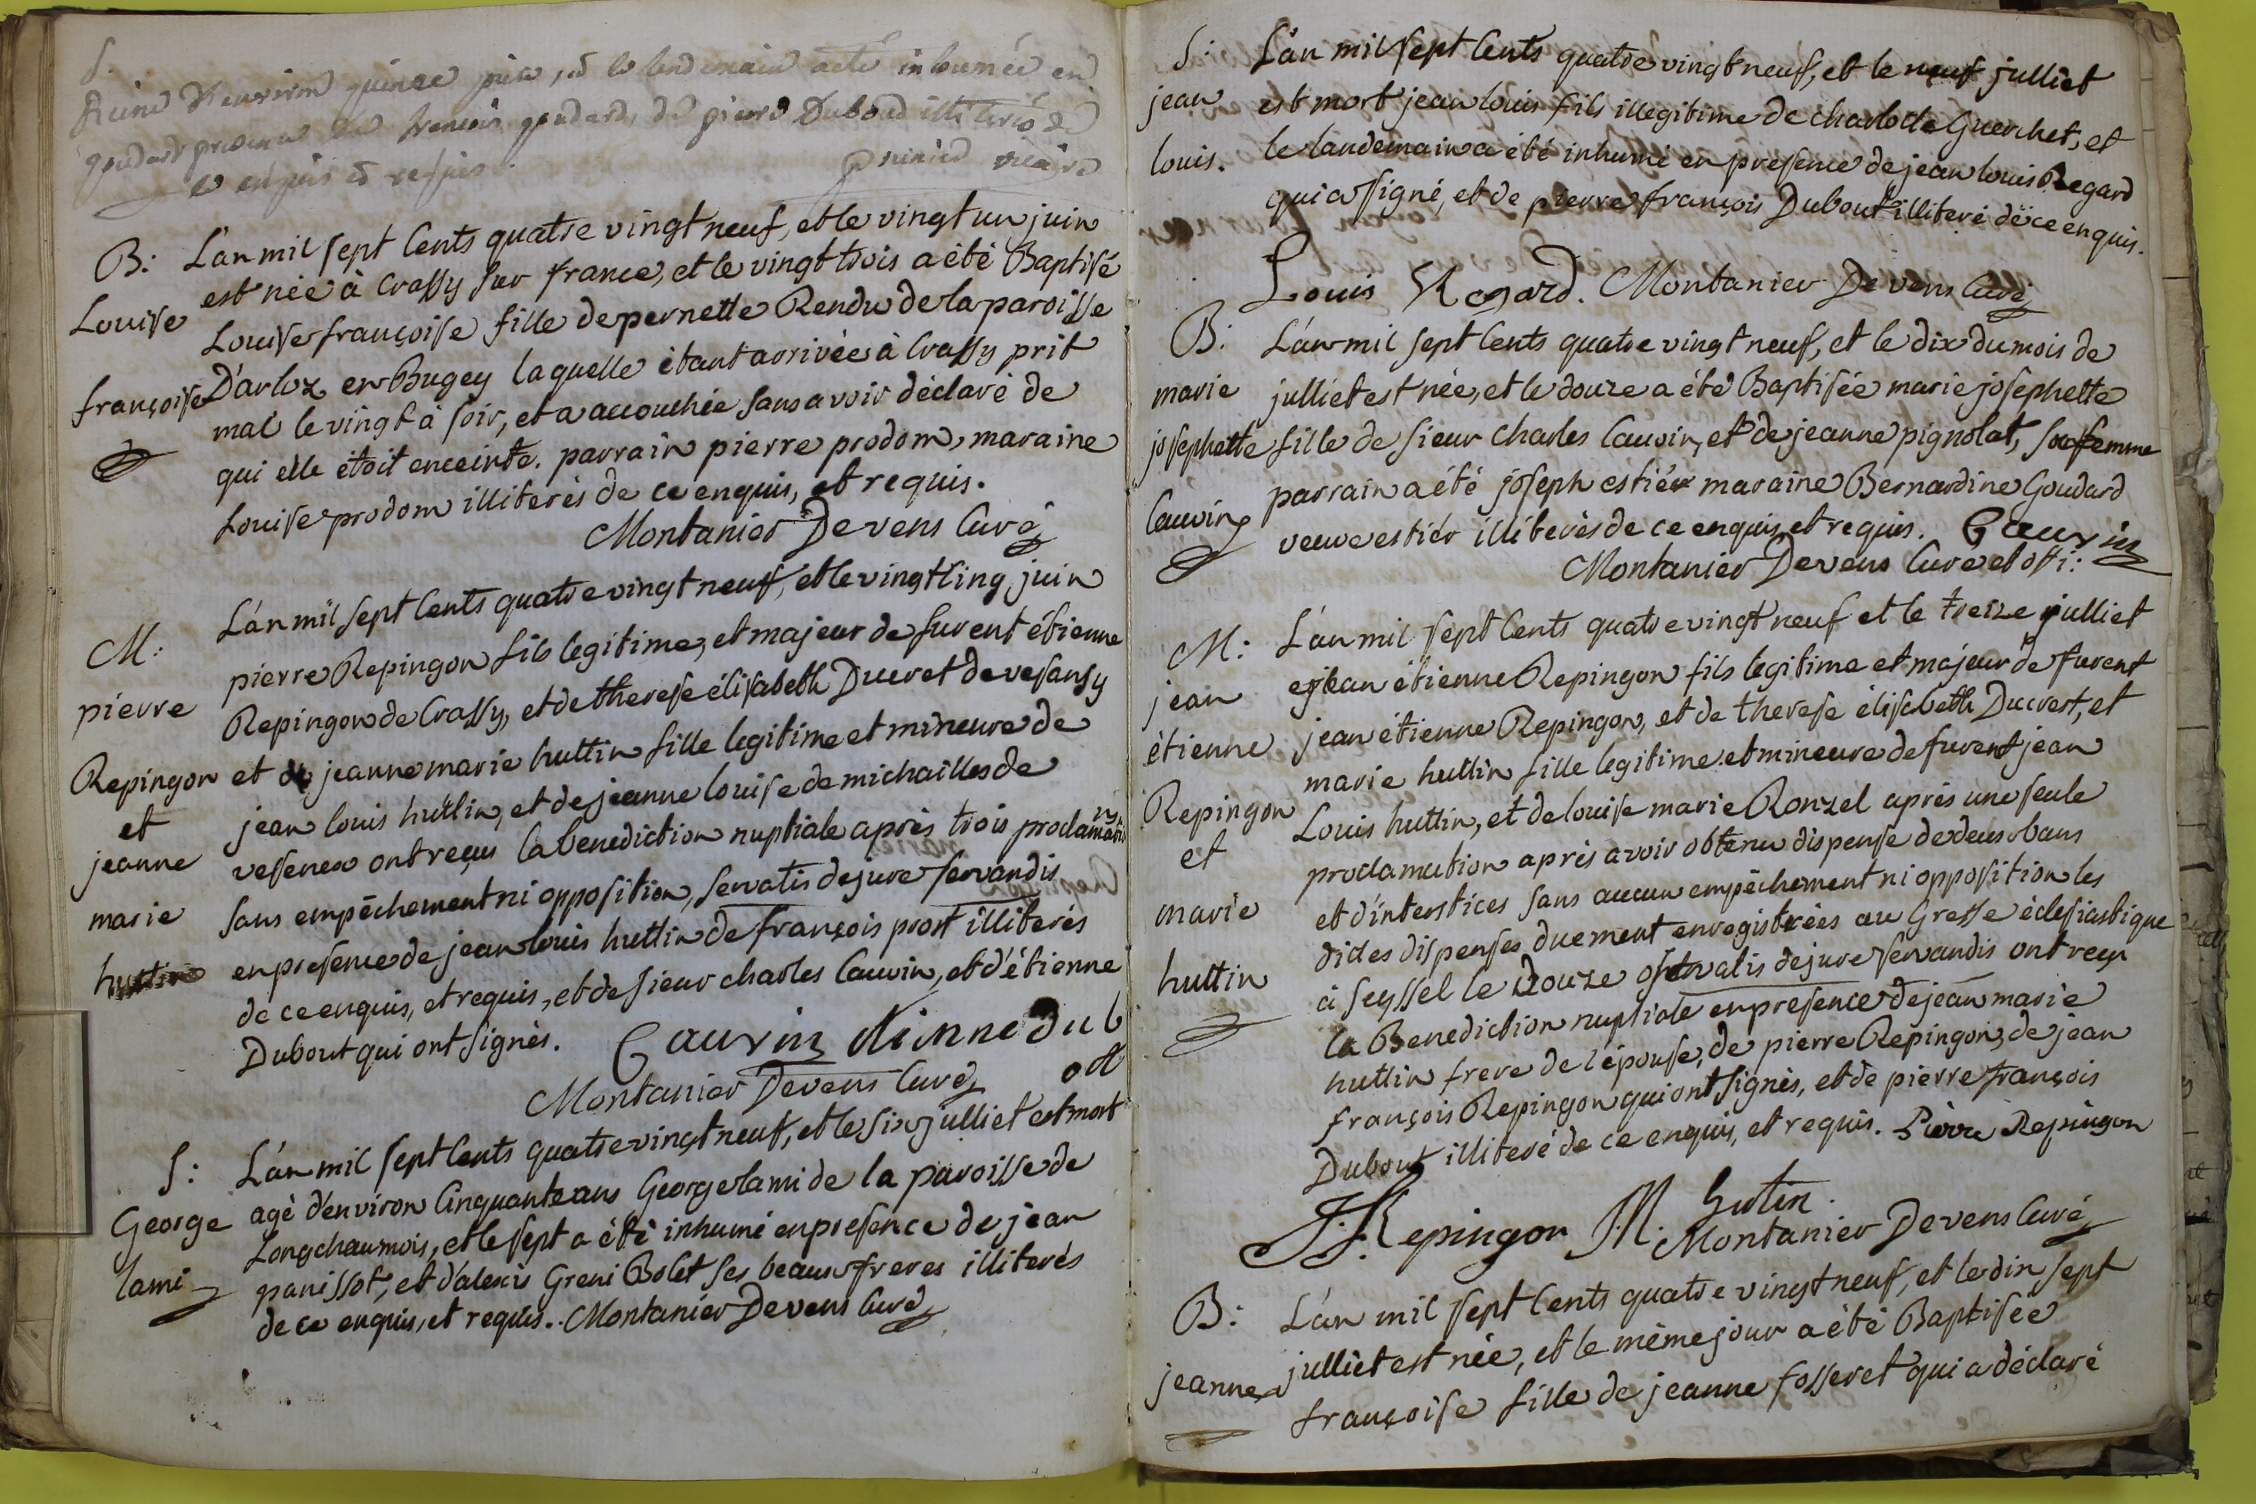 S.
Reine d'environ quinze jours, et le lendemain a été inhumée en
goudard de pierre Duboud illiteré de
ce enquis et requis. vicaire
B: L'an mil sept Cents quatre vingt neuf, et le vingt un juin
est née à Crassy sur france, et le vingt trois a été Baptisé
Louise
Louise françoise fille de pernette Rendu de la paroisse
françoise
D'arloz en Bugey laquelle étant arrivée à Crassy prit
mal le vingt à soir, et a accouchée sans avoir déclaré de
qui elle étoit enceinte. parrain pierre prodom, maraine
Louise prodom illiterés de ce enquis, et requis.
Montanier Devens Curé
L'an mil sept Cents quatre vingt neuf, et le vingt Cinq juin
M:
pierre Repingon fils legitime, et majeur de furent étienne
pierre
Repingon de Crassy, et de therese élisabeth Ducret de vesansy
Repingon et de jeanne marie huttin fille legitime et mineure de
et jean louis huttin, et de jeanne louise de michailles de
jeanne
vesenex ont reçus la benediction nuptiale après trois proclamations
marie
sans empêchement ni opposition, servatis de jure servandis
huttin
en presence de jean louis huttin de françois prost illiterés
de ce enquis, et requis, et de sieur charles Cauvin, et d'étienne
Dubout qui ont signés. Cauvin etienne dub
out
Montanier Devens Curé
S: L'an mil sept Cents quatre vingt neuf, et le six julliet est mort
George agé d'environ Cinquante ans George lami de la paroisse de
lami
Longchaumois, et le sept a été inhumé en presence de jean
panissot, et d'alexis Greni Bolet ses beaux freres illiterés
de ce enquis, et requis. Montanier Devens Curé
S: L'an mil sept Cents quatre vingt neuf, et le neuf julliet
jean est mort jean louis fils illegitime de charlotte Guerchet, et
louis. le landemain a été inhumé en presence de jean louis Regard
qui a signé, et de pierre françois Dubout illiteré de ce enquis.
Louis Regard. Montanier Devens Curé
B: L'an mil sept Cents quatre vingt neuf, et le dix du mois de
marie julliet est née, et le douze a été Baptisée marie josephette
josephette fille de sieur Charles Cauvin, et de jeanne pignolat, sa femme
Cauvin parrain a été joseph estiér maraine Bernardine Goudard
veuve estiér illiterés de ce enquis, et requis. Cauvin
Montanier Devens Curé et offi:
M: L'an mil sept Cents quatre vingt neuf et le treize julliet
jean jean étienne Repingon fils legitime et majeur de furent
étienne jean étienne Repingon, et de therese élisabeth Ducrest, et
marie huttin fille legitime et mineure de furent jean
Repingon Louis huttin, et de louise marie Ronzel après une seule
et proclamation après avoir obtenu dispense de deux bans
marie et d'interstices sans aucun empêchement ni opposition les
dictes dispenses duement enregistrées au Greffe éclesiastique
huttin à Seyssel le Douze servatis de jure servandis ont reçu
la Benediction nuptiale en presence de jean marie
huttin frere de l'épouse, de pierre Repingon, de jean
françois Repingon qui ont signés, et de pierre françois
Dubout illiteré de ce enquis, et requis. Pierre Repingon
J.F. Repingon J.M. hutin.
Montanier Devens Curé
B: L'an mil sept Cents quatre vingt neuf, et le dix sept
julliet est née, et le même jour a été Baptisée
jeanne
françoise fille de jeanne fosseret qui a déclaré